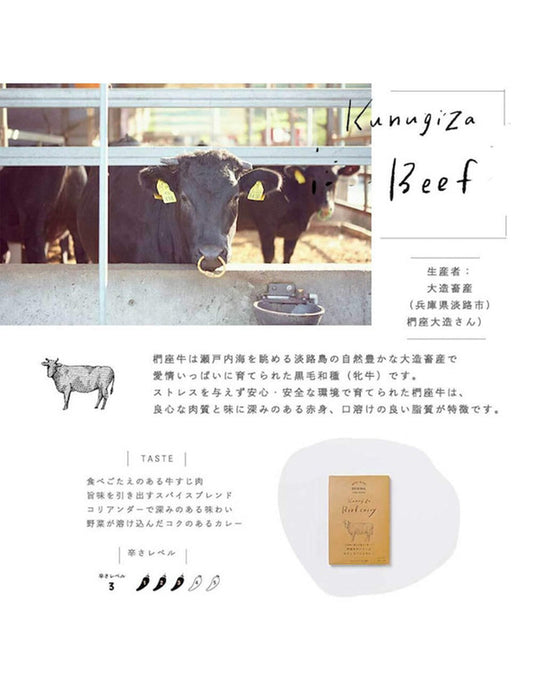 Kunugiza
Beef
生産者：
大造畜産
（兵庫県淡路市）
椚座大造さん）
椚座牛は瀬戸内海を眺める淡路島の自然豊かな大造畜産で
愛情いっぱいに育てられた黒毛和種（牝牛）です。
ストレスを与えず安心・安全な環境で育てられた椚座牛は、
良心な肉質と味に深みのある赤身、口溶けの良い脂質が特徴です。
TASTE
食べごたえのある牛すじ肉
旨味を引き出すスパイスブレンド
コリアンダーで深みのある味わい
野菜が溶け込んだコクのあるカレー
辛さレベル
辛さレベル
3
1 2 3 4 5
Kunugiza
Beef curry